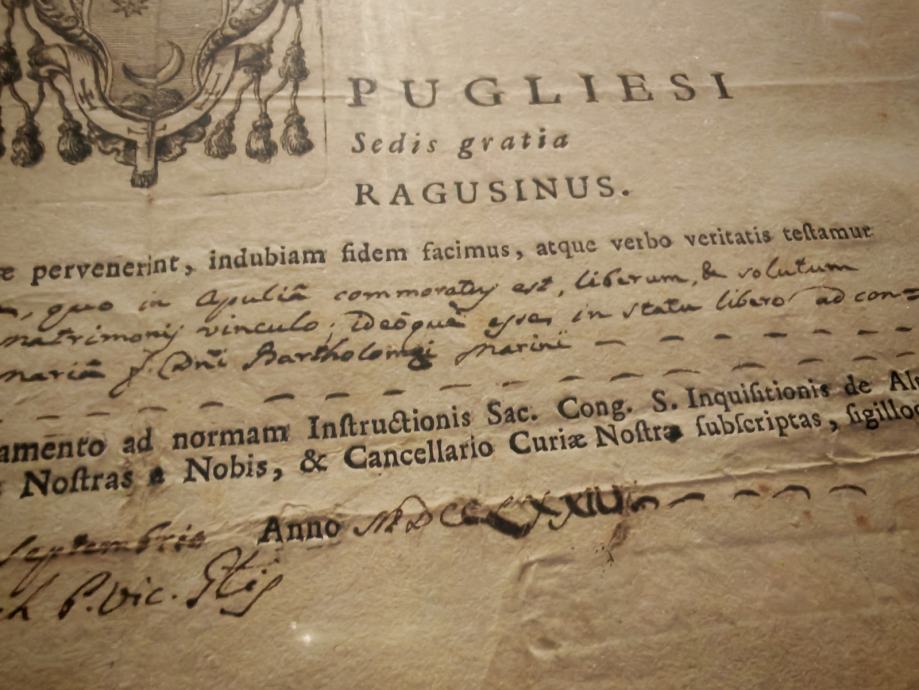 PUGLIESI
Sedis gratia
RAGUSINUS.
pervenerint, indubiam fidem facimus, atque verbo veritatis teſtamur
quo in Apuliâ commoratus est, liberum, & solutum
matrimonij vinculo; Ideòquè esse, in statu libero ad con=
Bartholomei Marini
amento ad normam Inſtructionis Sac. Cong. S. Inquiſitionis de
Noſtras a Nobis, & Cancellario Curiæ Noſtræ ſubſcriptas, ſigilloq
Septembris Anno
P. Vic. Gñlis